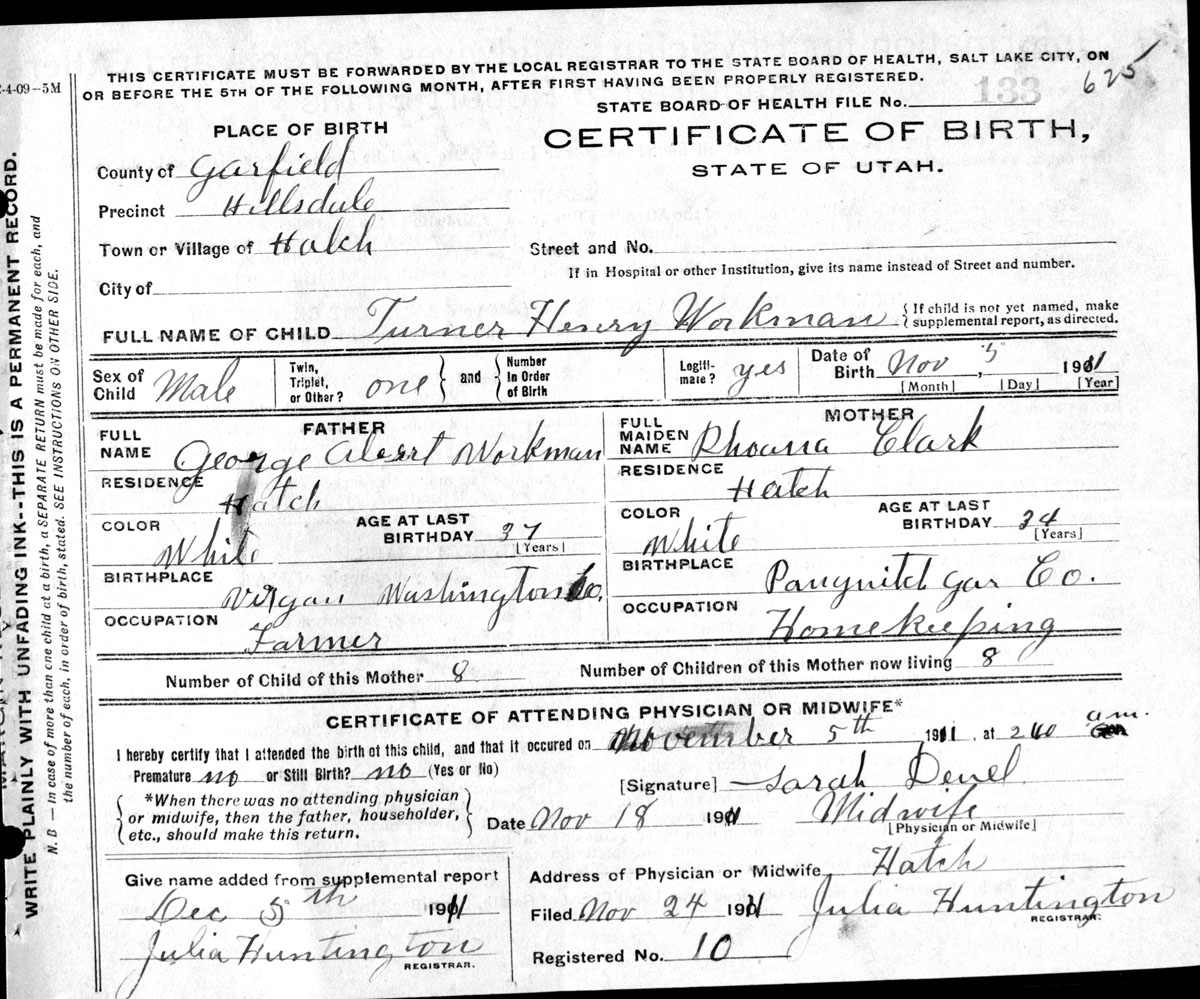 THIS CERTIFICATE MUST BE FORWARDED BY THE LOCAL REGISTRAR TO THE STATE BOARD OF HEALTH, SALT LAKE CITY, ON
OR BEFORE THE 5TH OF THE FOLLOWING MONTH, AFTER FIRST HAVING BEEN PROPERLY REGISTERED.
625
-4-09—5M
STATE BOARD OF HEALTH FILE No. 133
PLACE OF BIRTH
CERTIFICATE OF BIRTH,
STATE OF UTAH.
County of Garfield
Precinct Hillsdale
Town or Village of Hatch
Street and No.
If in Hospital or other Institution, give its name instead of Street and number.
City of
FULL NAME OF CHILD Turner Henry Workman { If child is not yet named, make
supplemental report, as directed.
Sex of Child Male
Twin, Triplet, or Other? one } and { Number In Order of Birth
Legiti-mate? yes
Date of Birth Nov 5, 1911
[Month] [Day] [Year]
FATHER
FULL NAME George Albert Workman
RESIDENCE Hatch
COLOR White
AGE AT LAST BIRTHDAY 37 [Years]
BIRTHPLACE Virgan Washington Co.
OCCUPATION Farmer
MOTHER
FULL MAIDEN NAME Rhoana Clark
RESIDENCE Hatch
COLOR White
AGE AT LAST BIRTHDAY 34 [Years]
BIRTHPLACE Panguitch Gar Co.
OCCUPATION Homekeeping
Number of Child of this Mother 8
Number of Children of this Mother now living 8
CERTIFICATE OF ATTENDING PHYSICIAN OR MIDWIFE*
I hereby certify that I attended the birth of this child, and that it occured on November 5th 1911, at 240 a.m.
Premature no or Still Birth? no (Yes or No)
[Signature] Sarah Deuel
{ *When there was no attending physician
or midwife, then the father, householder,
etc., should make this return. }
Date Nov 18 1911 Midwife
[Physician or Midwife]
Give name added from supplemental report
Dec 5th 1911
Julia Huntington
REGISTRAR.
Address of Physician or Midwife Hatch
Filed Nov 24 1911 Julia Huntington
REGISTRAR.
Registered No. 10
WRITE PLAINLY WITH UNFADING INK--THIS IS A PERMANENT RECORD.
N. B — In case of more than one child at a birth, a SEPARATE RETURN must be made for each, and
the number of each, in order of birth, stated. SEE INSTRUCTIONS ON OTHER SIDE.